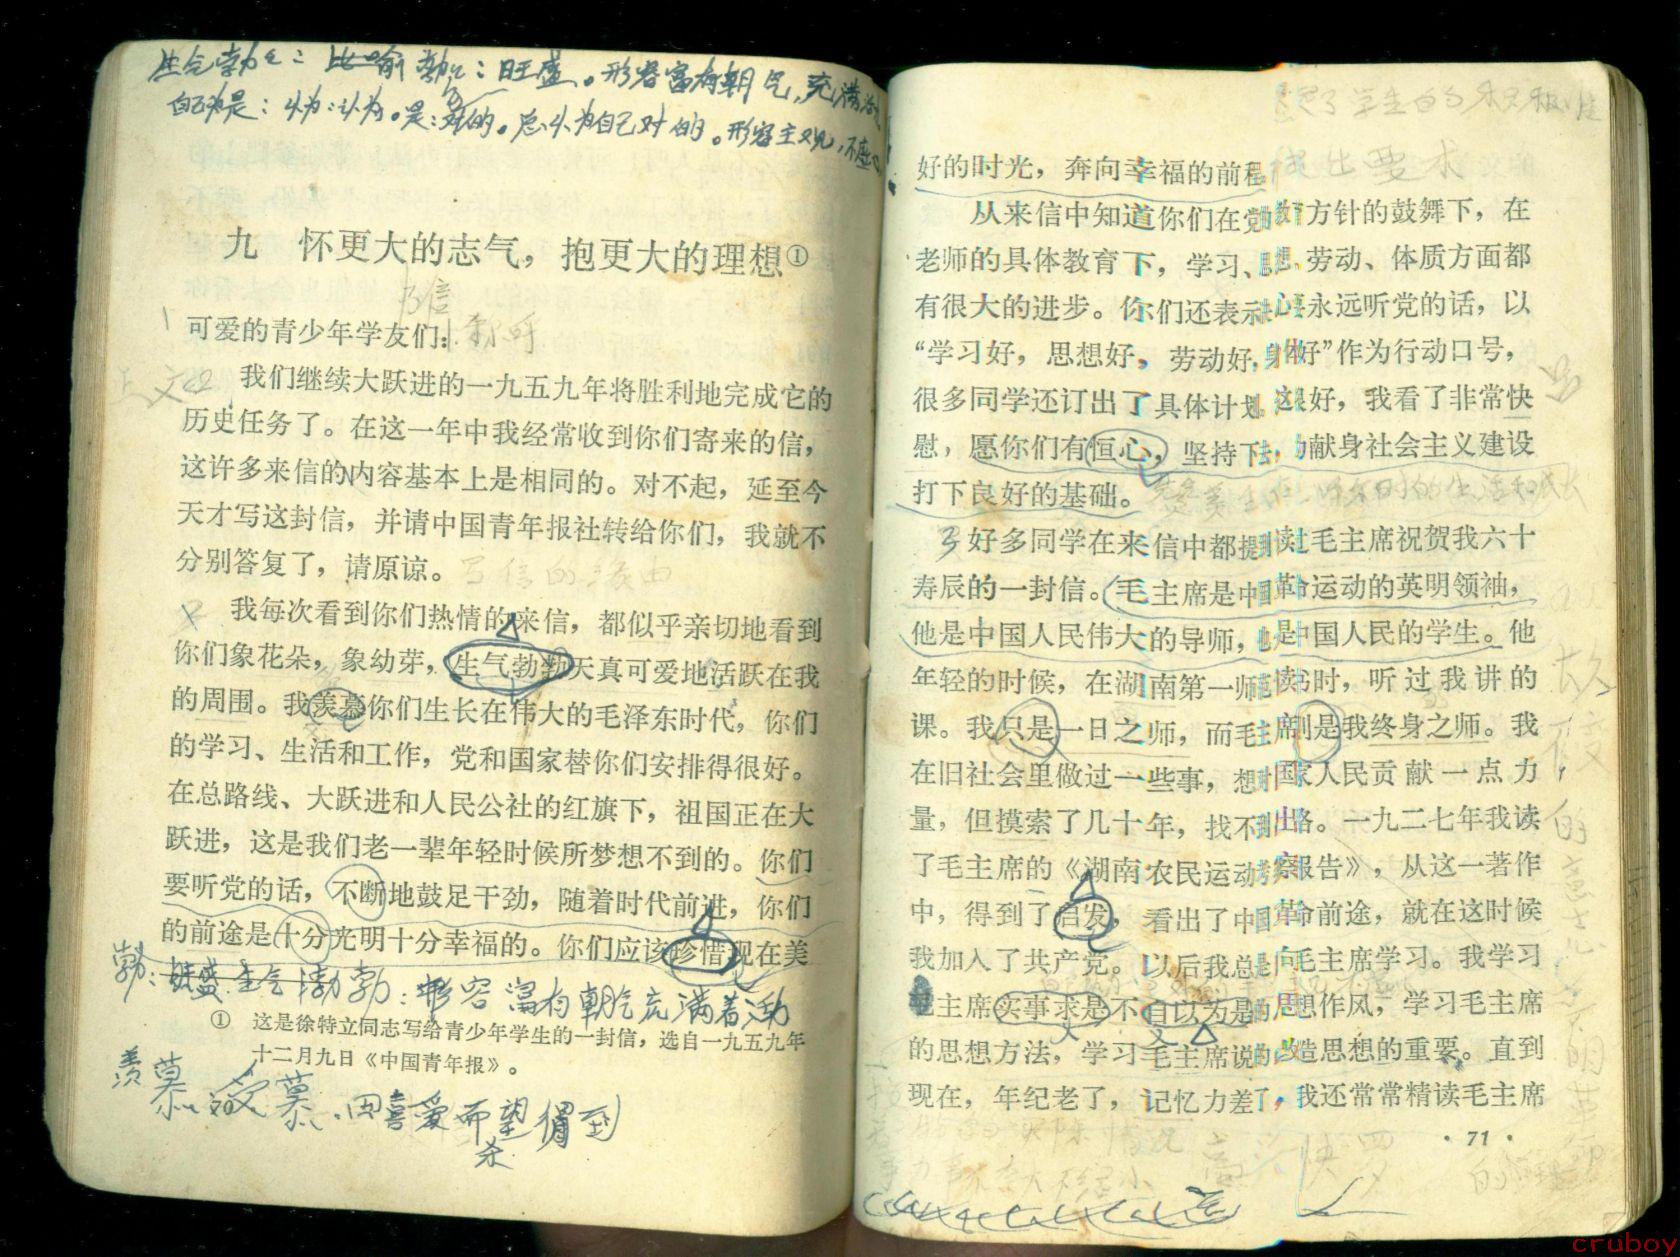 生气勃勃：比喻 勃勃：旺盛。形容富有朝气，充满活
自以为是：以为：认为。是：对的。总认为自己对的。形容主观，不虚心
九 怀更大的志气，抱更大的理想①
写信
可爱的青少年学友们：
正文
我们继续大跃进的一九五九年将胜利地完成它的
历史任务了。在这一年中我经常收到你们寄来的信，
这许多来信的内容基本上是相同的。对不起，延至今
天才写这封信，并请中国青年报社转给你们，我就不
分别答复了，请原谅。写信的缘由
我每次看到你们热情的来信，都似乎亲切地看到
你们象花朵，象幼芽，生气勃勃天真可爱地活跃在我
的周围。我羡慕你们生长在伟大的毛泽东时代，你们
的学习、生活和工作，党和国家替你们安排得很好。
在总路线、大跃进和人民公社的红旗下，祖国正在大
跃进，这是我们老一辈年轻时候所梦想不到的。你们
要听党的话，不断地鼓足干劲，随着时代前进，你们
的前途是十分光明十分幸福的。你们应该珍惜现在美
勃：旺盛 生气勃勃：形容富有朝气充满着活动
① 这是徐特立同志写给青少年学生的一封信，选自一九五九年
十二月九日《中国青年报》。
羡慕：爱慕。因喜爱而望得到
70
学生的积极性
提出要求
好的时光，奔向幸福的前程。
从来信中知道你们在党的教育方针的鼓舞下，在
老师的具体教育下，学习、思想、劳动、体质方面都
有很大的进步。你们还表示决心要永远听党的话，以
“学习好，思想好，劳动好，身体好”作为行动口号，
很多同学还订出了具体计划。这很好，我看了非常快
慰，愿你们有恒心，坚持下去，为献身社会主义建设
打下良好的基础。
3 好多同学在来信中都提到读过毛主席祝贺我六十
寿辰的一封信。毛主席是中国革命运动的英明领袖，
他是中国人民伟大的导师，也是中国人民的学生。他
年轻的时候，在湖南第一师范读书时，听过我讲的
课。我只是一日之师，而毛主席则是我终身之师。我
在旧社会里做过一些事，想对国家人民贡献一点力
量，但摸索了几十年，找不到出路。一九二七年我读
了毛主席的《湖南农民运动考察报告》，从这一著作
中，得到了启发，看出了中国革命前途，就在这时候
我加入了共产党。以后我总是向毛主席学习。我学习
毛主席实事求是不自以为是的思想作风，学习毛主席
的思想方法，学习毛主席说的改造思想的重要。直到
现在，年纪老了，记忆力差了，我还常常精读毛主席
·71·
cruboy